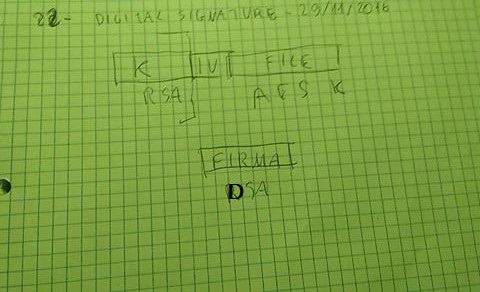 22- DIGITAL SIGNATURE - 29/11/2016
K IV FILE
RSA AES K
FIRMA
DSA